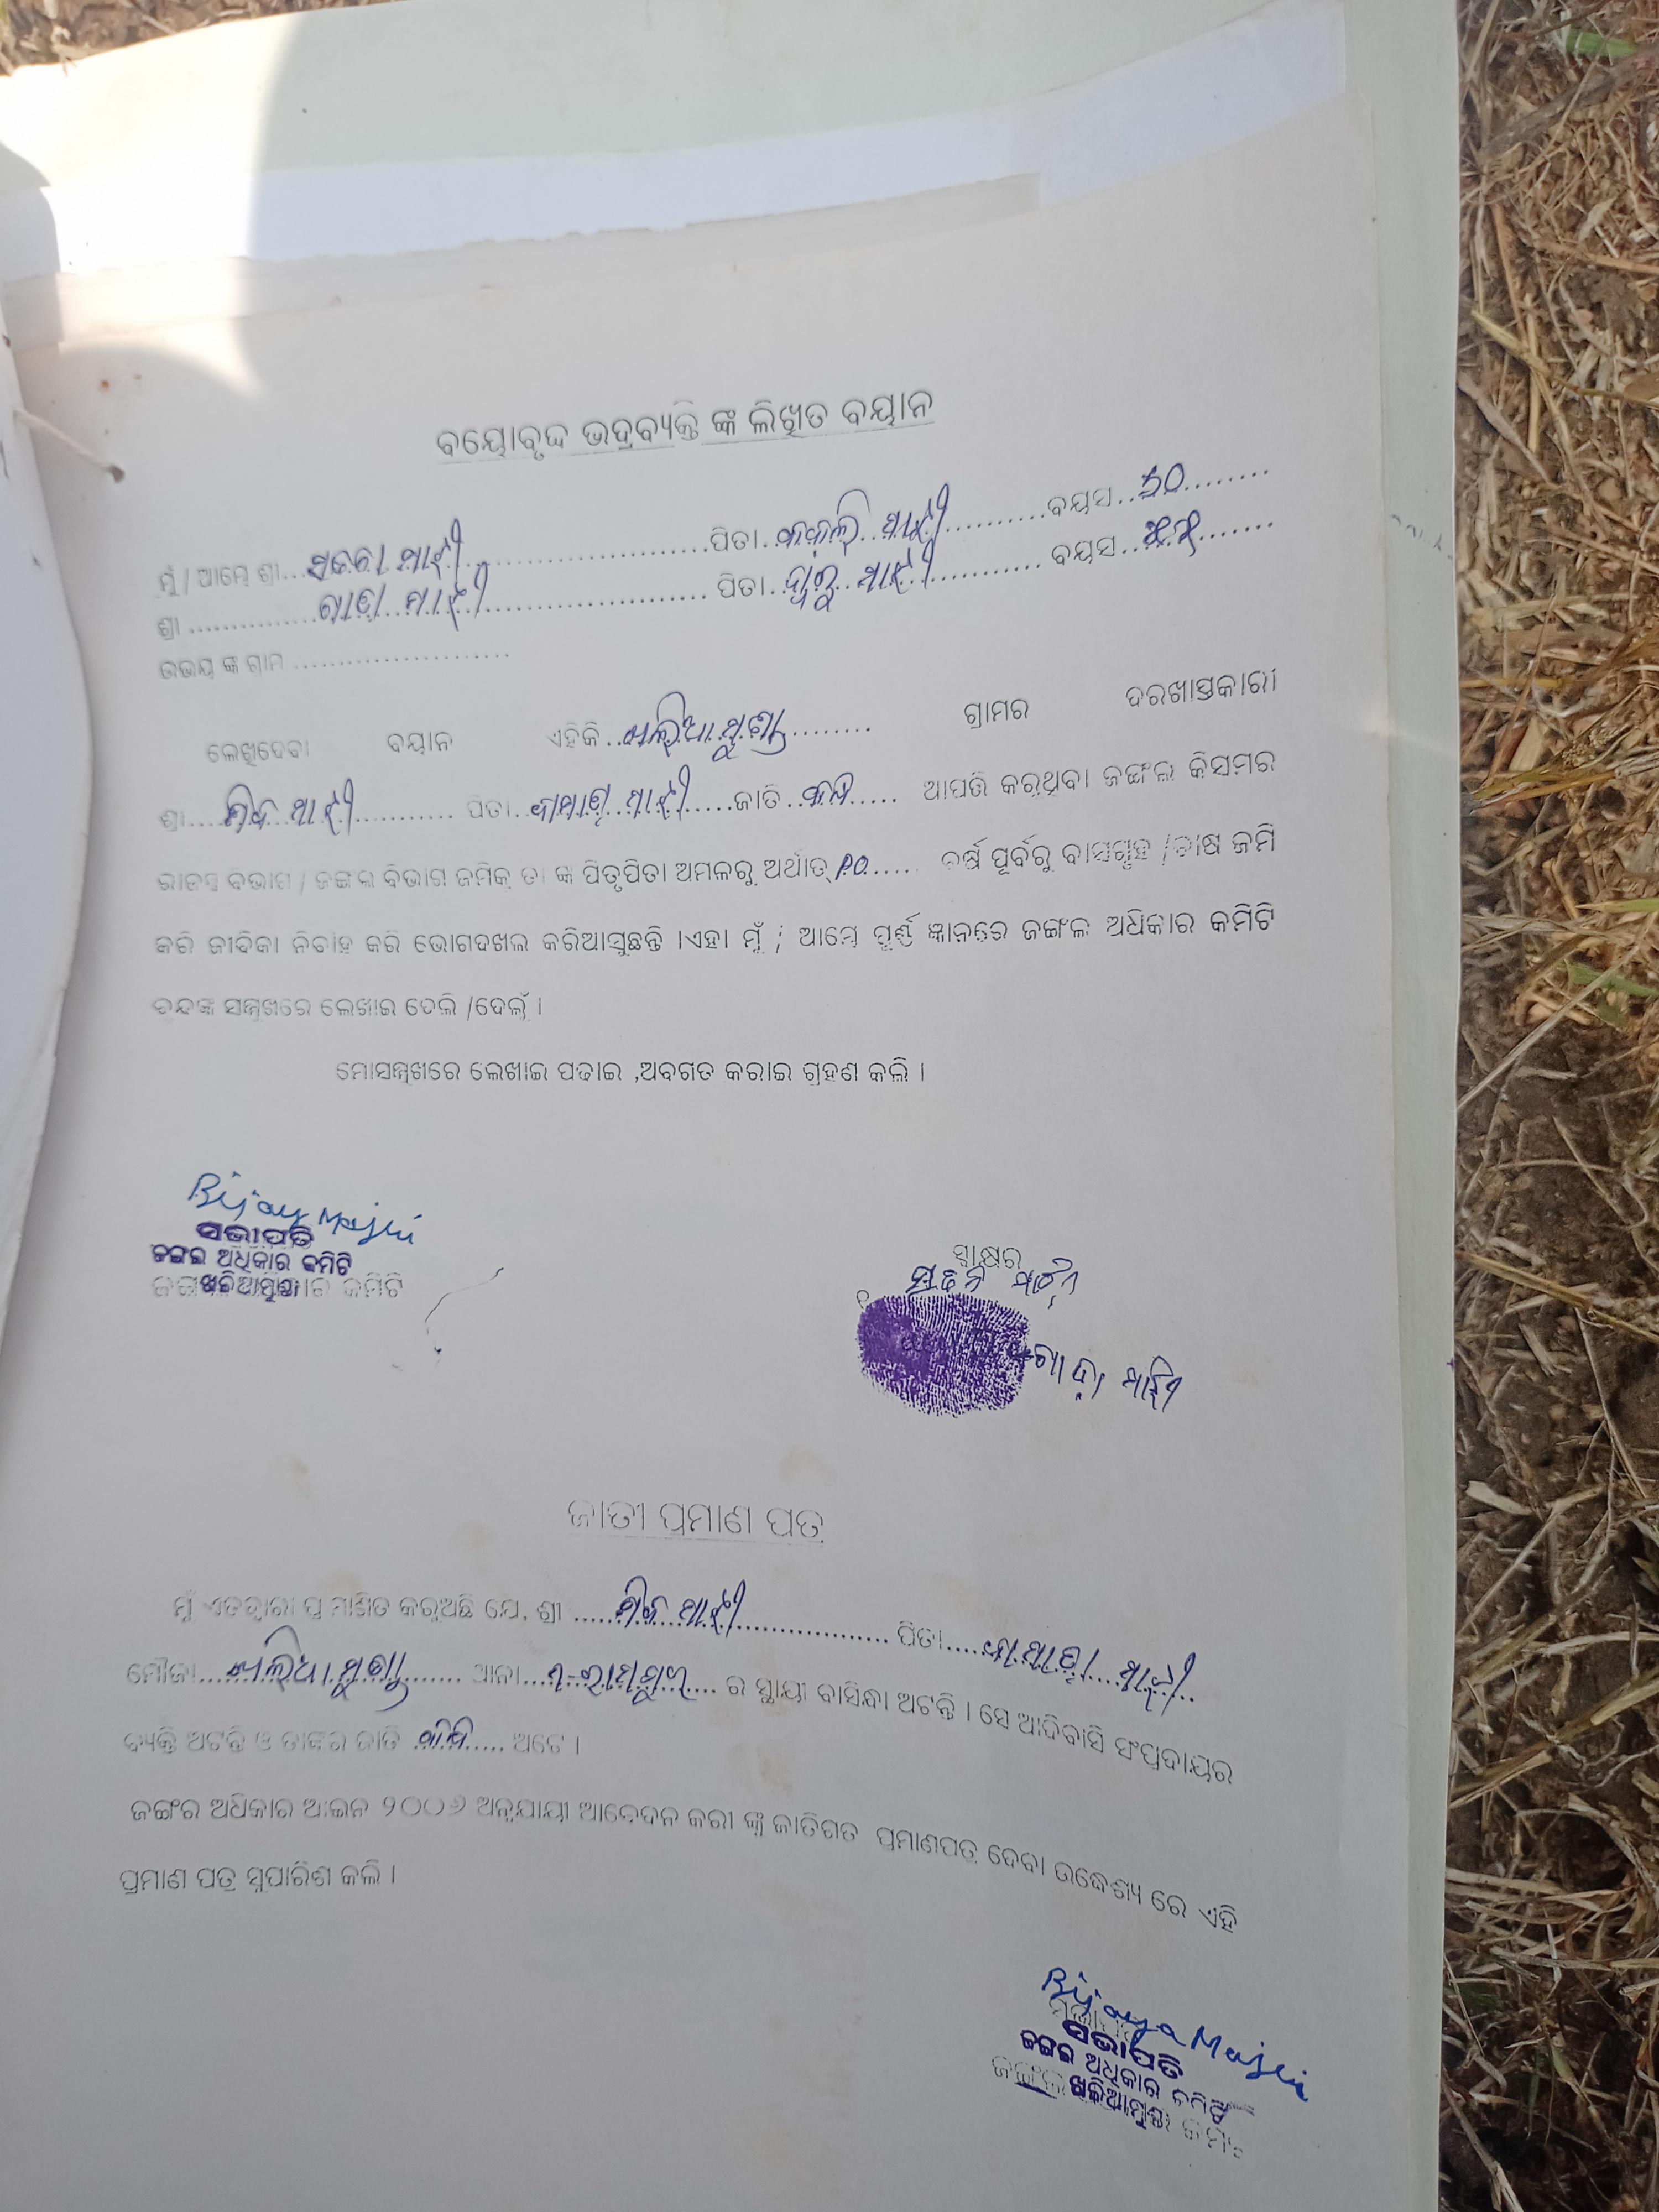 ବୟୋବୃଦ୍ଧ ଭଦ୍ରବ୍ୟକ୍ତି ଙ୍କ ଲିଖିତ ବୟାନ
ମୁଁ / ଆମ୍ଭେ ଶ୍ରୀ.... ମାଝୀ ........ପିତା... ମାଝୀ ........ବୟସ..୬୦........
ଶ୍ରୀ ............... ମାଝୀ ............ ପିତା.. ମାଝୀ ........ ବୟସ..........
ଉଭୟ ଙ୍କ ଗ୍ରାମ ........................
ଲେଖିଦେବା ବୟାନ ଏହିକି ..ଖଲିଆମୁଣ୍ଡା........ ଗ୍ରାମର ଦରଖାସ୍ତକାରୀ
ଶ୍ରୀ.... ମାଝୀ........... ପିତା.. ମାଝୀ......ଜାତି ..କନ୍ଧ..... ଆପତ୍ତି କରୁଥିବା ଜଙ୍ଗଲ କିସମର
ରାଜସ୍ୱ ବିଭାଗ / ଜଙ୍ଗଲ ବିଭାଗ ଜମିକୁ ତା ଙ୍କ ପିତୃପିତା ଅମଳରୁ ଅର୍ଥାତ୍ ....... ବର୍ଷ ପୂର୍ବରୁ ବାସଗୃହ /ଚାଷ ଜମି
କରି ଜୀବିକା ନିର୍ବାହ କରି ଭୋଗଦଖଲ କରିଆସୁଛନ୍ତି ।ଏହା ମୁଁ / ଆମ୍ଭେ ପୂର୍ଣ୍ଣ ଜ୍ଞାନରେ ଜଙ୍ଗଳ ଅଧିକାର କମିଟି
ବୃନ୍ଦଙ୍କ ସମ୍ମୁଖରେ ଲେଖାଇ ଦେଲି /ଦେଲୁଁ ।
ମୋସମ୍ମୁଖରେ ଲେଖାଇ ପଢାଇ ,ଅବଗତ କରାଇ ଗ୍ରହଣ କଲି ।
Bijay Majhi
ସଭାପତି
ଜଙ୍ଗଲ ଅଧିକାର କମିଟି
ଖଳିଆମୁଣ୍ଡା
ସ୍ୱାକ୍ଷର
ମାଝି
ମାଝି
ଜାତୀ ପ୍ରମାଣ ପତ୍ର
ମୁଁ ଏତଦ୍ୱାରା ପ୍ରମାଣିତ କରୁଅଛି ଯେ, ଶ୍ରୀ ...... ମାଝୀ.................. ପିତା.... ମାଝୀ..
ମୌଜା...ଖଲିଆମୁଣ୍ଡା....... ଥାନା...ମ-ରାମପୁର.... ର ସ୍ଥାୟୀ ବାସିନ୍ଦା ଅଟନ୍ତି । ସେ ଆଦିବାସି ସଂପ୍ରଦାୟର
ବ୍ୟକ୍ତି ଅଟନ୍ତି ଓ ତାଙ୍କର ଜାତି ..କନ୍ଧ..... ଅଟେ ।
ଜଙ୍ଗର ଅଧିକାର ଆଇନ ୨୦୦୬ ଅନୁଯାୟୀ ଆବେଦନ କରୀ ଙ୍କୁ ଜାତିଗତ ପ୍ରମାଣପତ୍ର ଦେବା ଉଦ୍ଧେଶ୍ୟ ରେ ଏହି
ପ୍ରମାଣ ପତ୍ର ସୁପାରିଶ କଲି ।
Bijaya Majhi
ସଭାପତି
ଜଙ୍ଗଲ ଅଧିକାର କମିଟି
ଖଳିଆମୁଣ୍ଡା